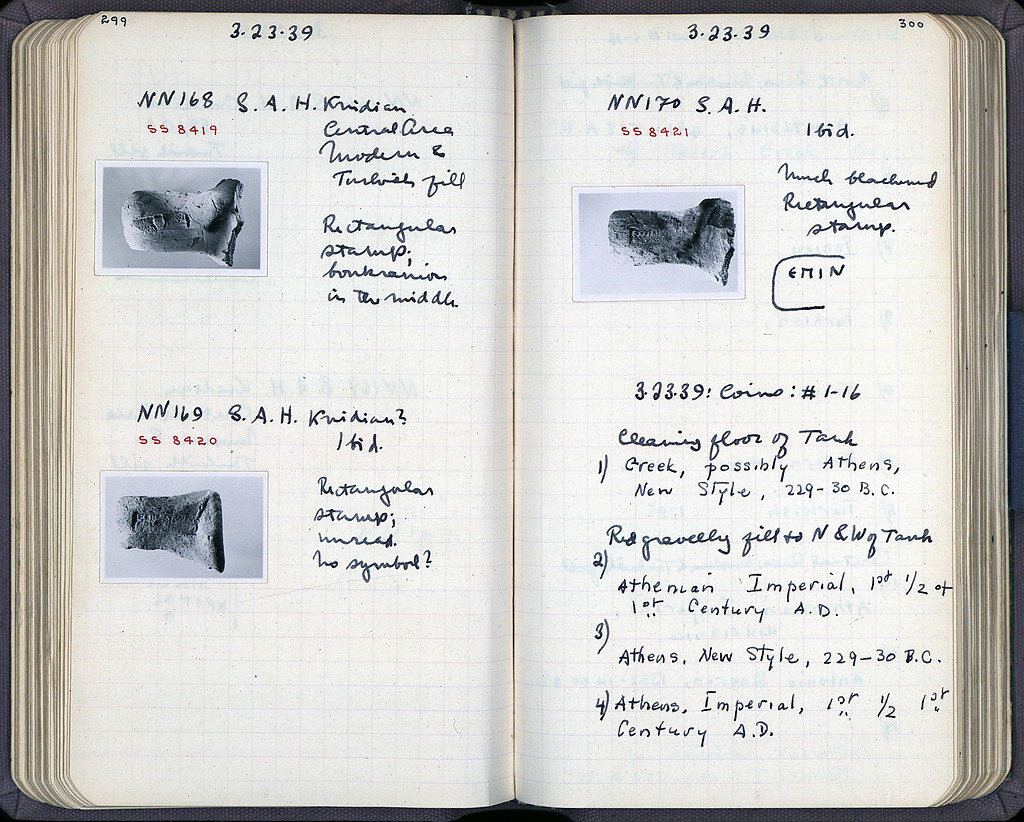 299
3·23·39
NN168 S. A. H. Knidian
SS 8419
Central Area
Modern &
Turkish fill
Rectangular
stamp;
boukranion
in the middle.
NN169 S. A. H. Knidian?
SS 8420
Ibid.
Rectangular
stamp;
unread.
No symbol?
300
3·23·39
NN170 S. A. H.
SS 8421
Ibid.
Much blackened
Rectangular
stamp.
ΕΠΙΝ
3·23·39: Coins: #1-16
Cleaning floor of Tank
1) Greek, possibly Athens,
New Style, 229-30 B.C.
Red gravelly fill to N & W of Tank
2)
Athenian Imperial, 1st 1/2 of
1st Century A.D.
3)
Athens, New Style, 229-30 B.C.
4) Athens, Imperial, 1st 1/2 1st
Century A.D.